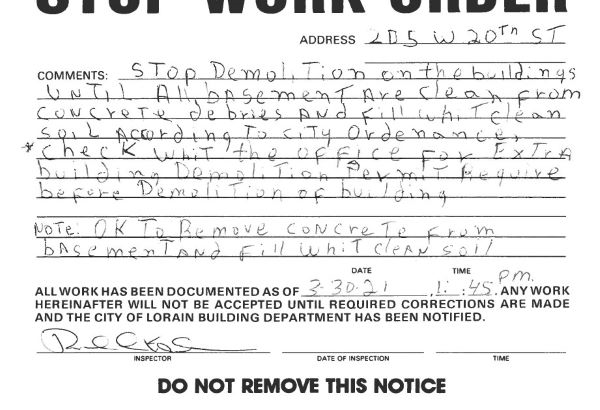 STOP WORK ORDER
ADDRESS 205 W 20Th ST
COMMENTS: STop DemoliTion on the buildings
UNTIL All basement Are clean from
concrete debries AND Fill whit clean
soil According To ciTy Ordenance,
* Check whit the office For ExTrA
building DemoliTion PermiT Require
before DemoliTion of building
NoTe: OK To Remove concreTe from
basement AND fill whit cleAN soil
DATE TIME
ALL WORK HAS BEEN DOCUMENTED AS OF 3-30-21 1:45 pm. ANY WORK
HEREINAFTER WILL NOT BE ACCEPTED UNTIL REQUIRED CORRECTIONS ARE MADE
AND THE CITY OF LORAIN BUILDING DEPARTMENT HAS BEEN NOTIFIED.
INSPECTOR DATE OF INSPECTION TIME
DO NOT REMOVE THIS NOTICE